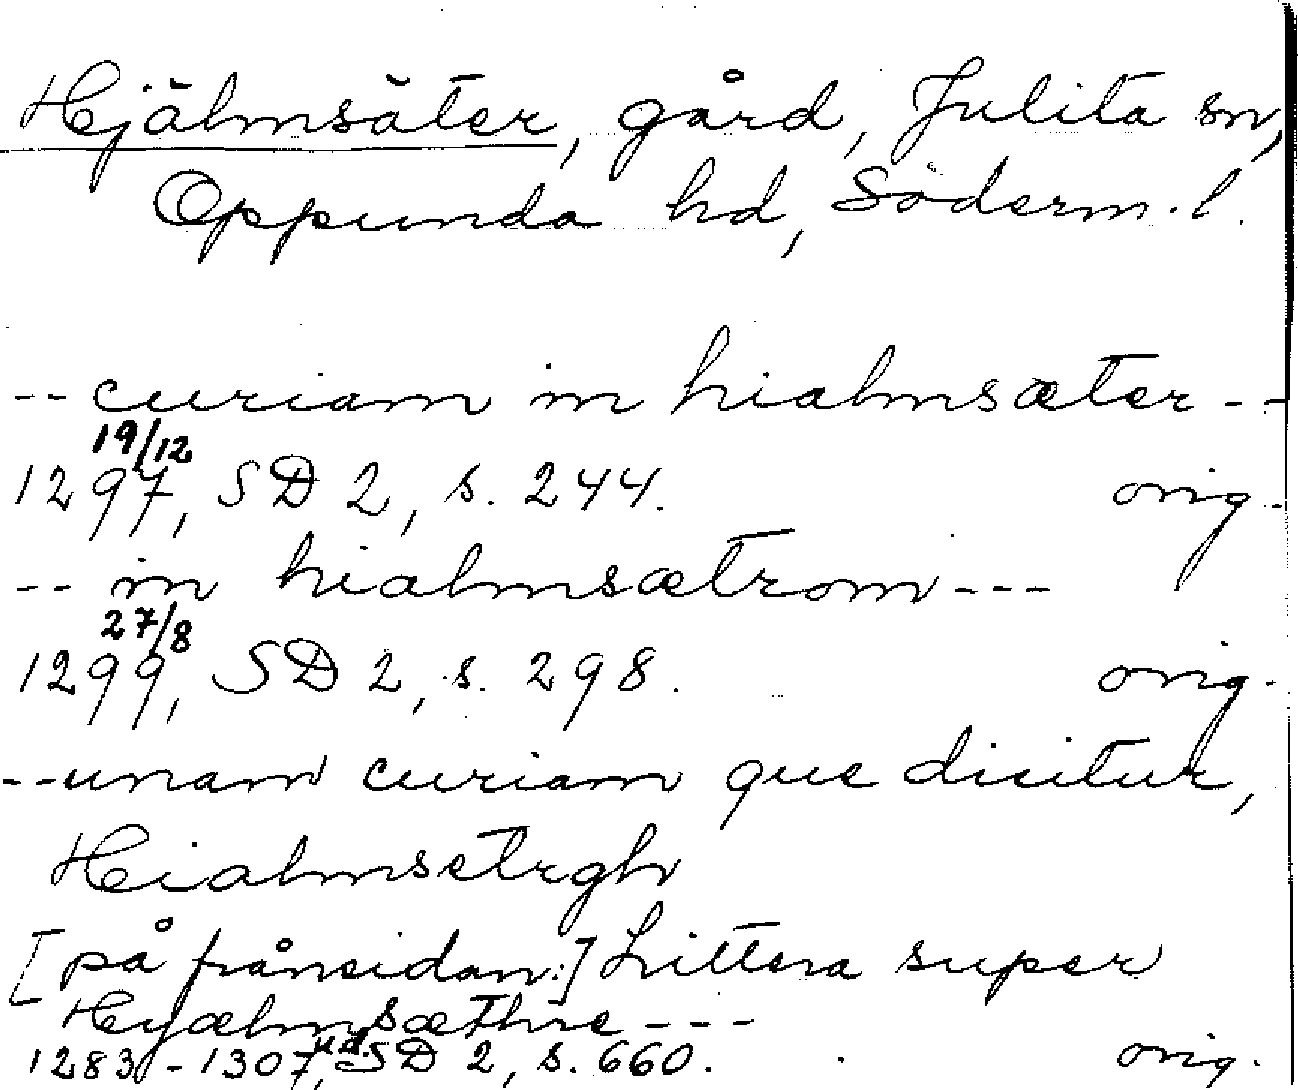 Hjälmsäter, gård, Julita sn,
Oppunda hd, Söderm. l.
-- curiam in hialmsæter --
19/12
1297, SD 2, s. 244. orig.
-- in hialmsætrom ---
27/8
1299, SD 2, s. 298. orig.
-- unam curiam que dicitur,
Hialmsetrgh
[på frånsidan:] Littera super
Hyælmsæthre ---
1283-1307, u.d. SD 2, s. 660. orig.